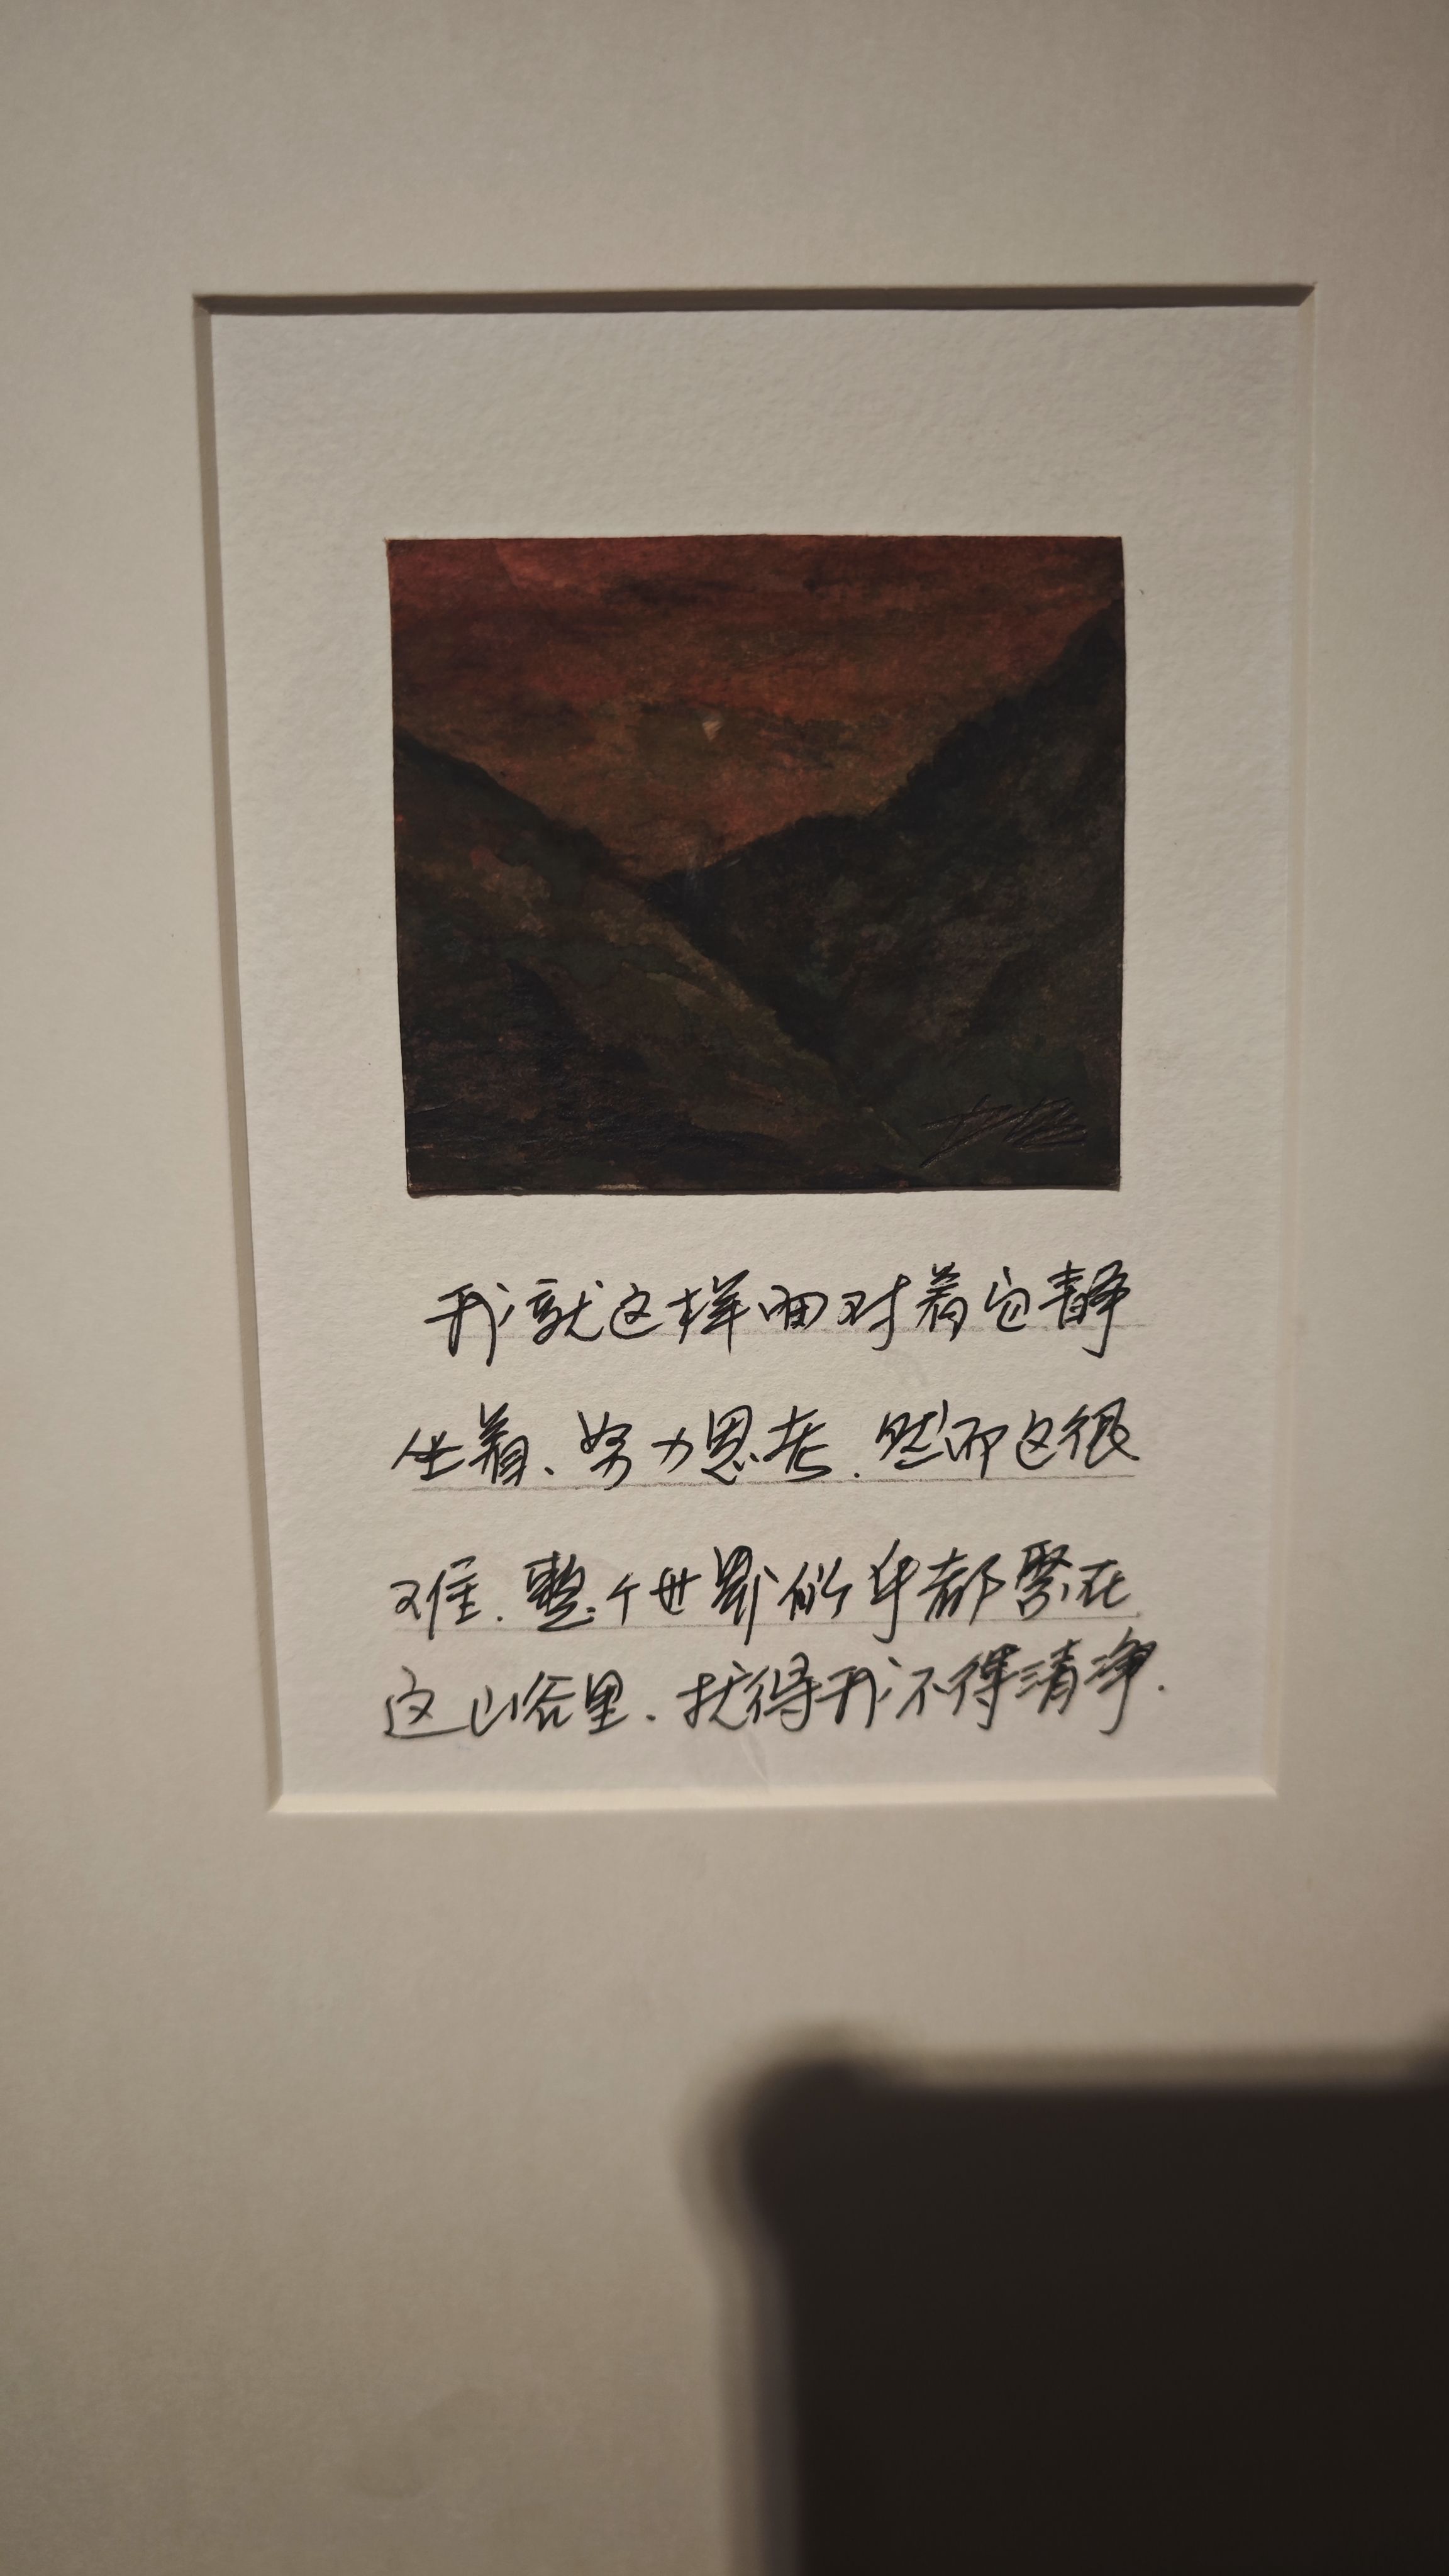 我就这样面对着它静
坐着、努力思考.然而这很
难.整个世界似乎都聚在
这山谷里.扰得我不得清净.